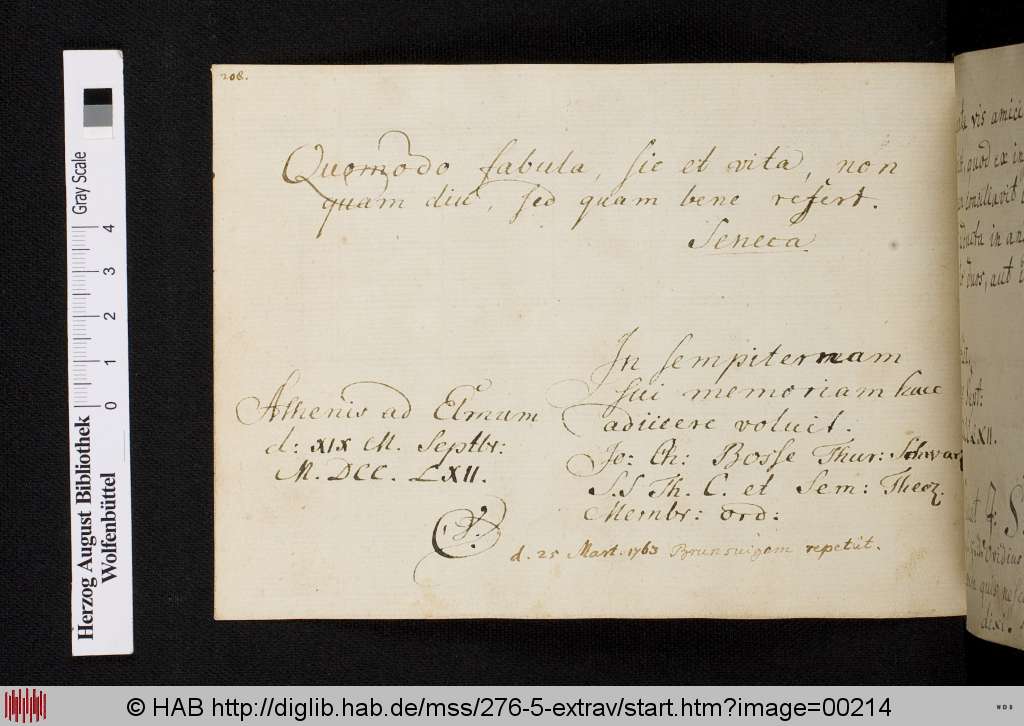 208.
Quomodo fabula, sic et vita, non
quam diu, sed quam bene refert.
Seneca.
In sempiternam
sui memoriam haec
adiicere voluit.
Jo: Ch: Bosse Thur: Schwarz
S.S Th. C. et Sem: Theol.
Membr: ord:
Athenis ad Elmum
d: XIX M. Septbr:
M. DCC. LXII.
d. 25 Mart. 1763 Brunsuigam repetiit.
vis amici
quod ex in
conciliavit
in an
duos, aut
LXII.
Ovidius
dixi.
Herzog August Bibliothek
Wolfenbüttel
Gray Scale
0 1 2 3 4
© HAB http://diglib.hab.de/mss/276-5-extrav/start.htm?image=00214